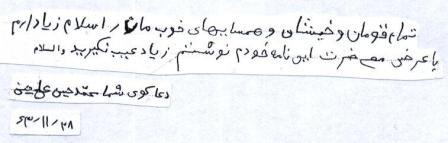 تمام قومان و خیشتان و همسایهای خوب مان را سلام زیاد دارم
با عرض معضرت این نامه خودم نوشتم زیاد عیب نگیرید والسلام
دعا گوی شما محمد حسین علی
۶۳/۱۱/۲۸